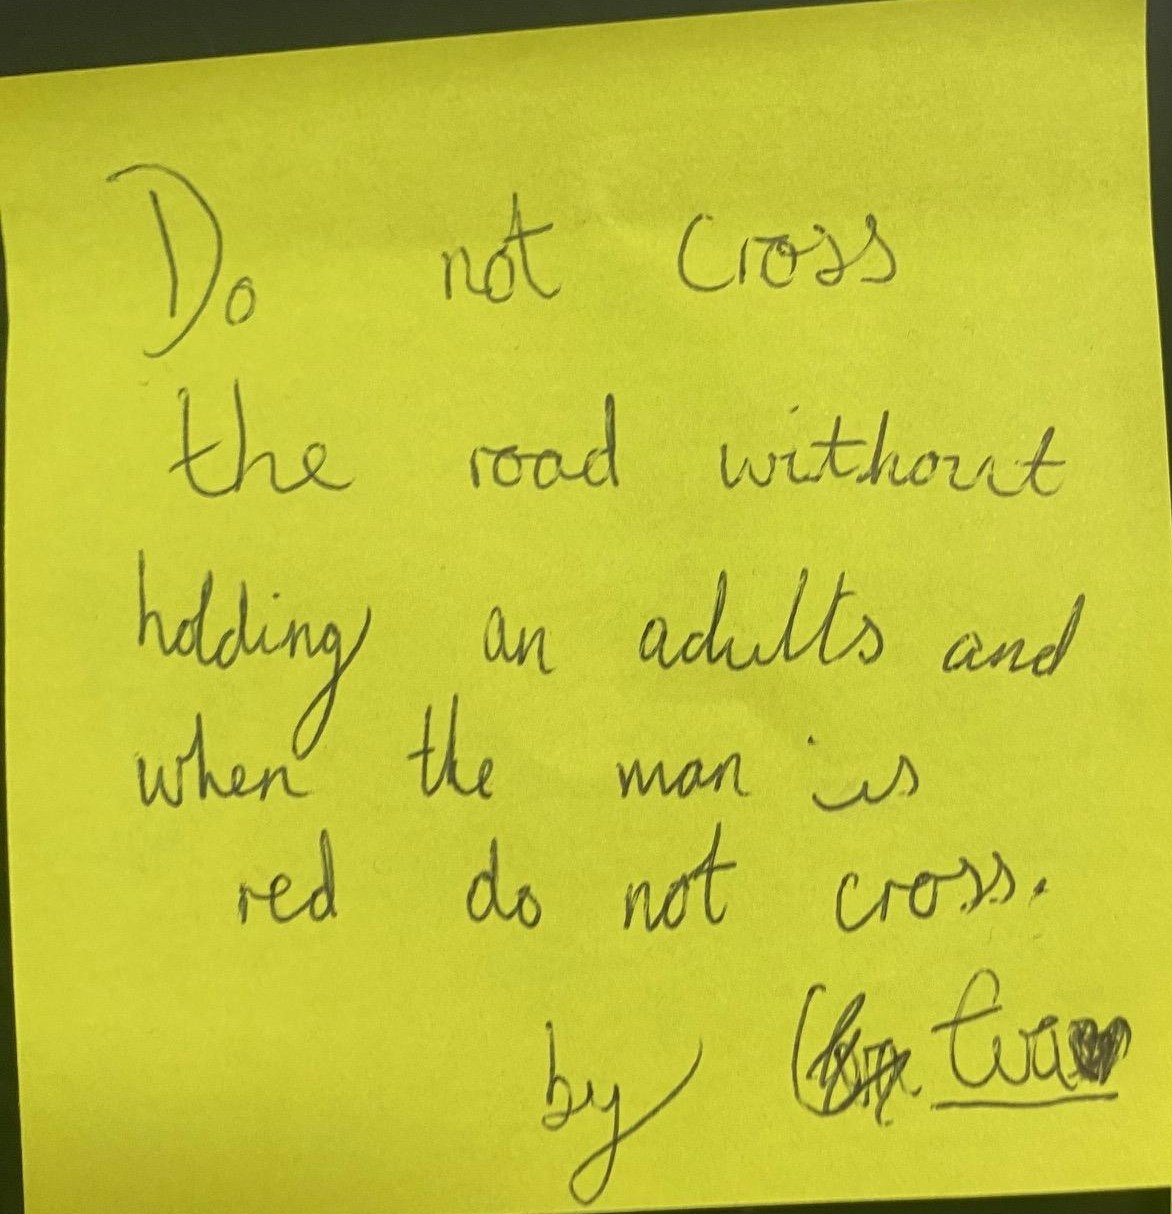 Do not cross
the road without
holding an adults and
when the man is
red do not cross.
by